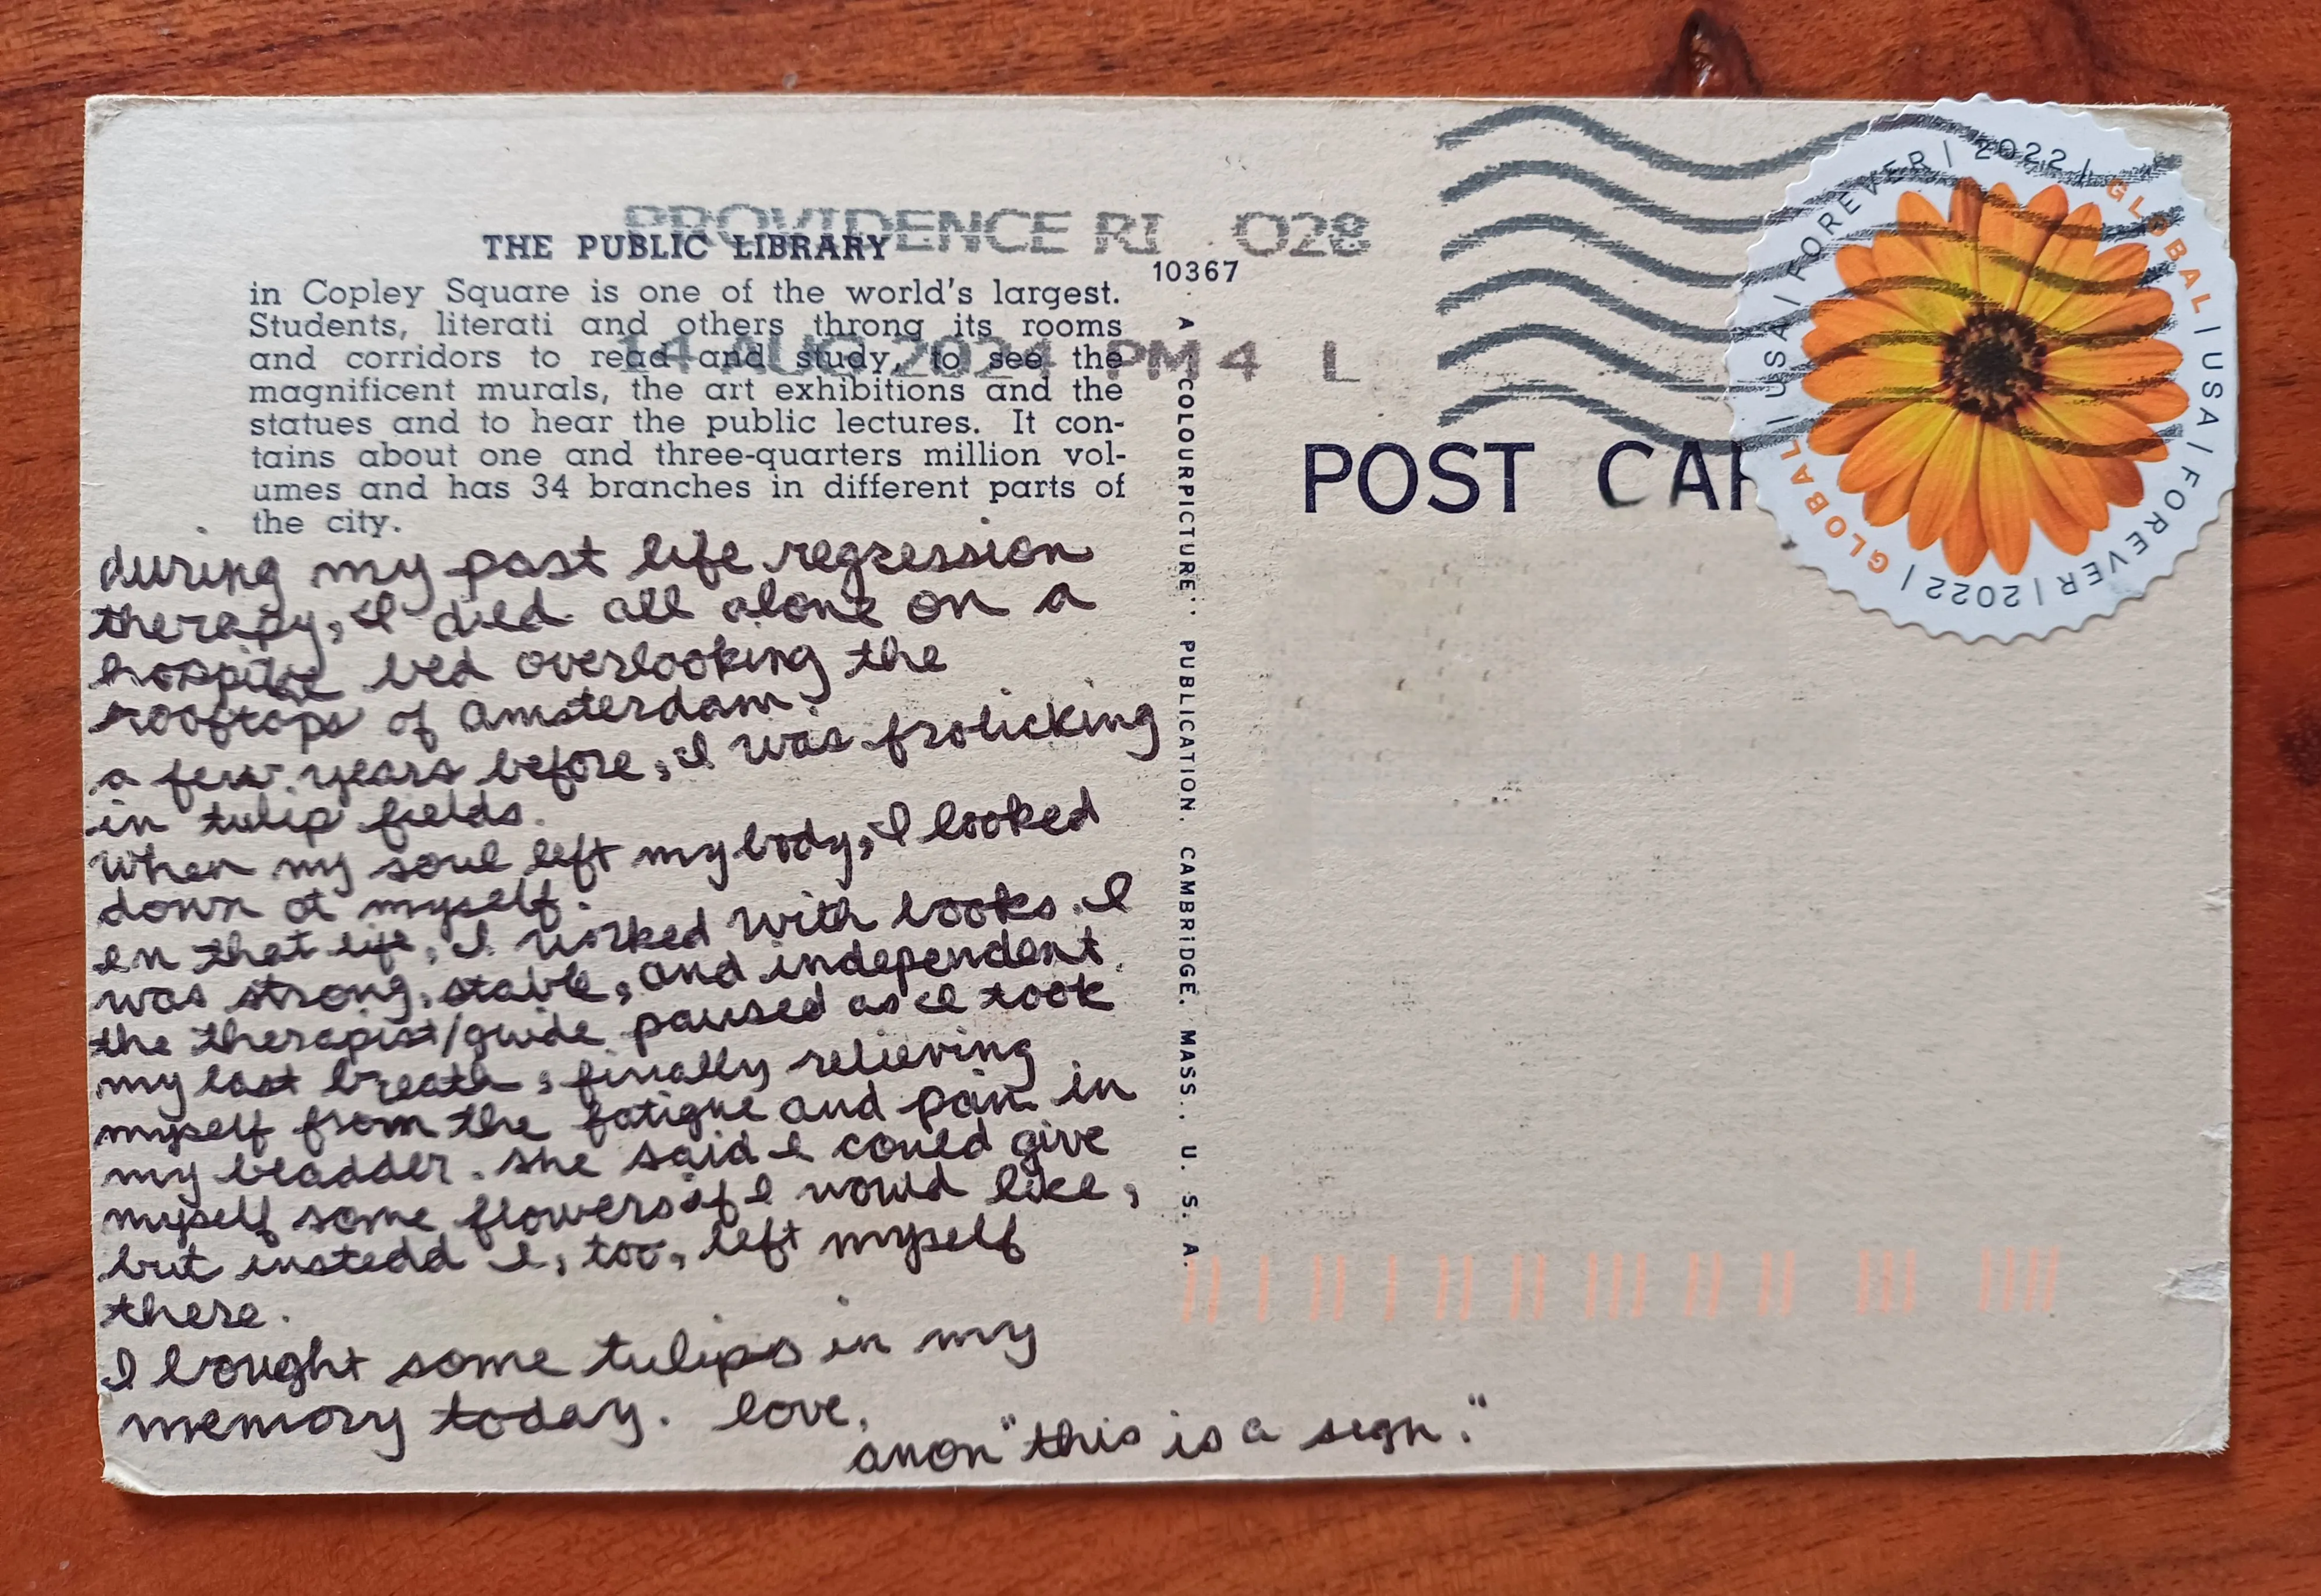 PROVIDENCE RI 028
14 AUG 2024 PM 4 L
THE PUBLIC LIBRARY
in Copley Square is one of the world's largest.
Students, literati and others throng its rooms
and corridors to read and study, to see the
magnificent murals, the art exhibitions and the
statues and to hear the public lectures. It con-
tains about one and three-quarters million vol-
umes and has 34 branches in different parts of
the city.
during my past life regression
therapy, I died all alone on a
bed overlooking the
rooftops of amsterdam.
a few years before, I was frolicking
in tulip fields.
when my soul left my body, I looked
down at myself.
in that life, I worked with books. I
was strong, stable, and independent.
the therapist/guide paused as I took
my last breath, finally relieving
myself from the fatigue and pain in
my bladder. she said I could give
myself some flowers if I would like,
but instedd I, too, left myself
there.
I bought some tulips in my
memory today. love,
anon "this is a sign."
10367
A COLOURPICTURE" PUBLICATION. CAMBRIDGE. MASS., U. S. A.
POST CAR
USA / FOREVER / 2022 / GLOBAL / USA / FOREVER / 2022 / GLOBAL /